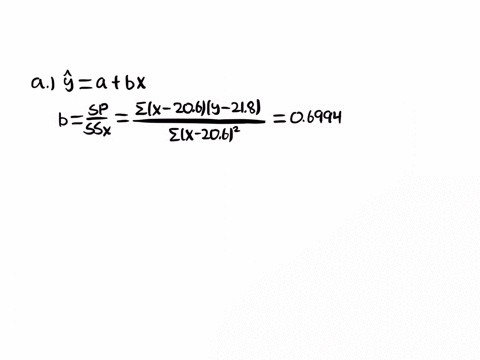 a.) ŷ = a + bx
b = SP/SSx = Σ(x-20.6)(y-21.8)/Σ(x-20.6)² = 0.6994